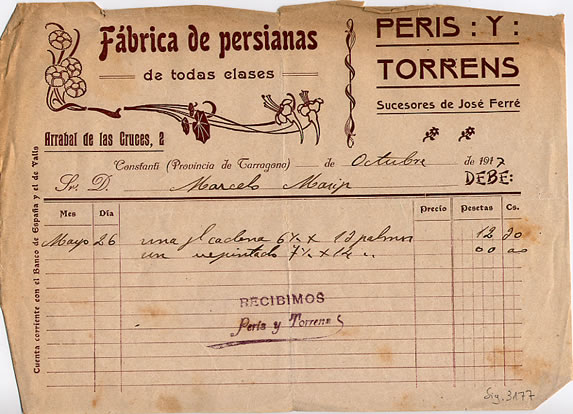 Fábrica de persianas
de todas clases
PERIS : Y :
TORRENS
Sucesores de José Ferré
Arrabal de las Cruces, 2
Constantí (Provincia de Tarragona) de Octubre de 1917
Sr. D. Marcelo
DEBE:
Mes Día Precio Pesetas Cs.
Mayo 26 una cadena 6½ x 12 palmos 12 20
un repintado 7½ x 12 " 00
RECIBIMOS
Peris y Torrens
Cuenta corriente con el Banco de España y el de Valls
Sig. 3177